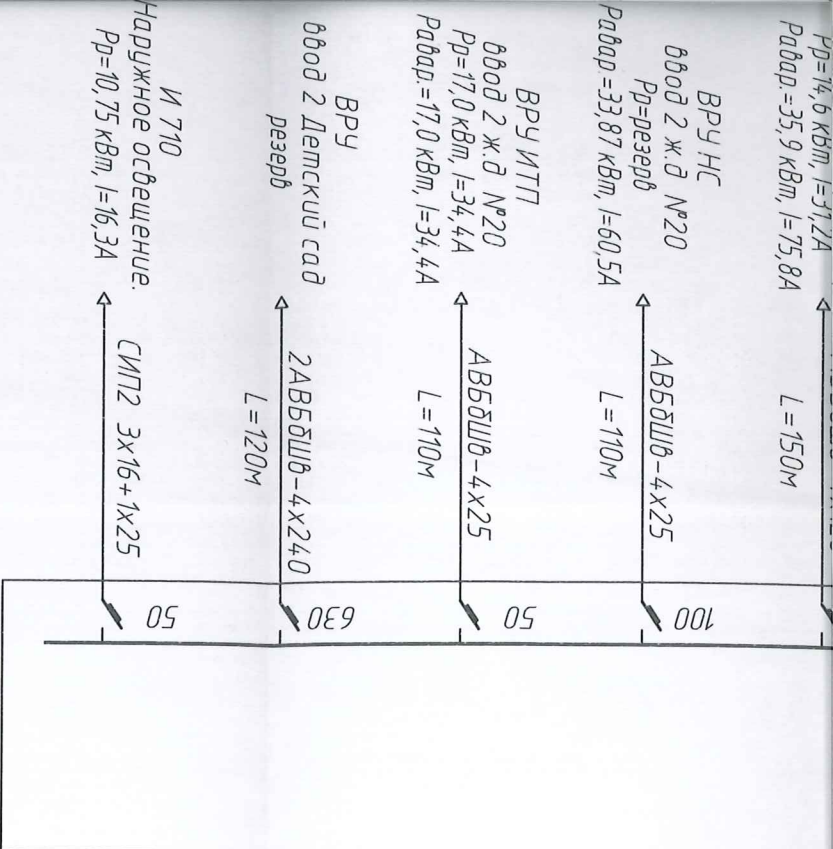 Pp=14,6 кВт, I=31,2А
Равар.=35,9 кВт, I=75,8А
L=150м
ВРУ НС
ввод 2 ж.д №20
Рр=резерв
Равар.=33,87 кВт, I=60,5А
АВБбШв-4х25
L=110м
100
ВРУ ИТП
ввод 2 ж.д №20
Рр=17,0 кВт, I=34,4А
Равар.=17,0 кВт, I=34,4А
АВБбШв-4х25
L=110м
50
ВРУ
ввод 2 Детский сад
резерв
2АВБбШв-4х240
L=120м
630
И 710
Наружное освещение.
Рр=10,75 кВт, I=16,3А
СИП2 3х16+1х25
50